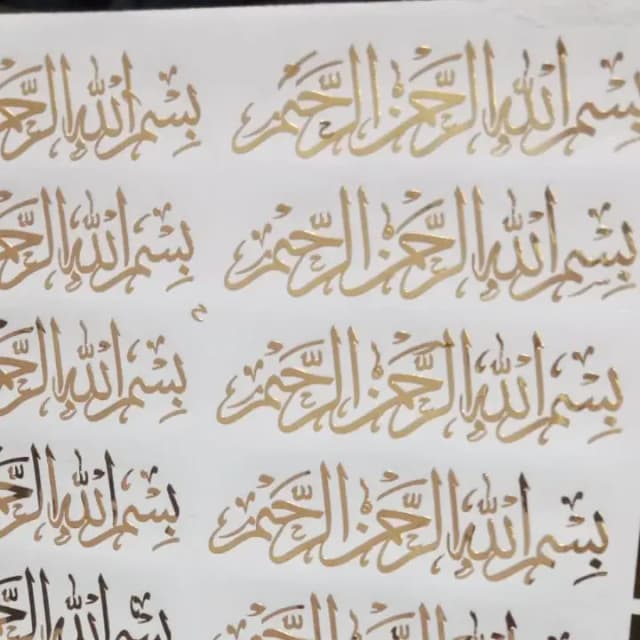 بسم الله الرحمن الرحيم بسم الله الرح
بسم الله الرحمن الرحيم بسم الله الرح
بسم الله الرحمن الرحيم بسم الله الرح
بسم الله الرحمن الرحيم بسم الله الر
بسم الله